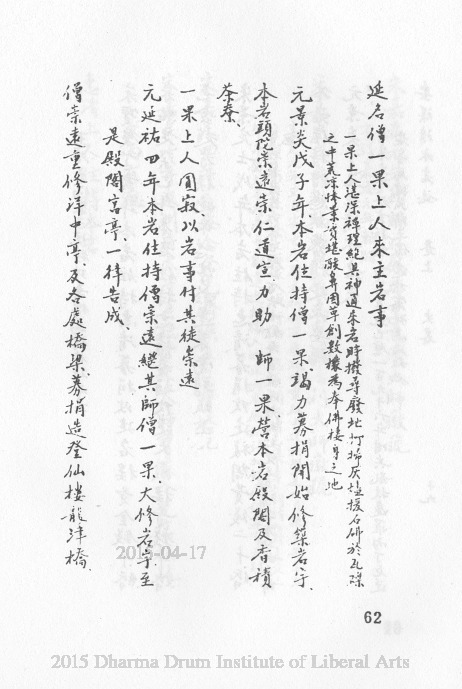 延名僧一果上人來主岩事
一果上人湛深禪理絕具神通來岩時撥尋廢址打掃灰燼援石佛於瓦礫
之中荒涼情景實堪酸鼻用草創數椽為奉佛棲身之地
元景炎戊子年、本岩住持僧一果、竭力募捐開始修築岩宇、
本岩頭院崇遠崇仁道宣力助 師一果營本岩殿閣及香積
茶寮、
一果上人圓寂、以岩事付其徒崇遠
元延祐四年本岩住持僧崇遠繼其師僧一果、大修岩宇至
是殿閣宮亭、一律告成、
僧崇遠重修洋中亭及各處橋梁、募捐造登仙樓龍津橋、
62
2015-04-17
2015 Dharma Drum Institute of Liberal Arts